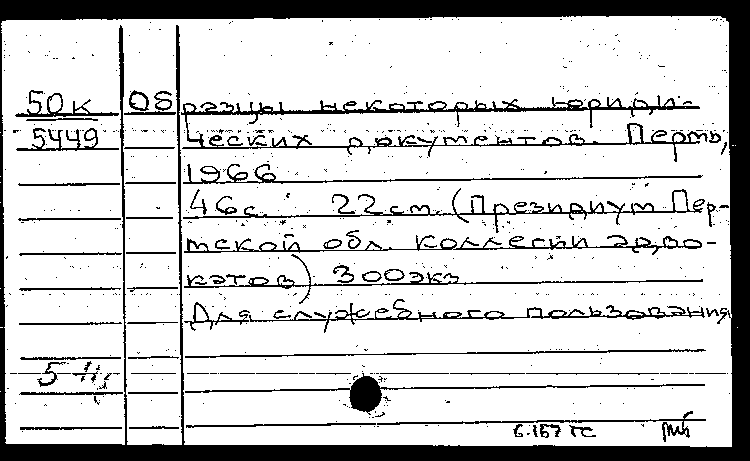 50к Образцы некоторых юриди-
5449 ческих документов. Пермь,
1966
46с. 22см. (Президиум Пер-
мской обл. коллегии адво-
катов) 300экз
Для служебного пользования
5
6.157 ТС